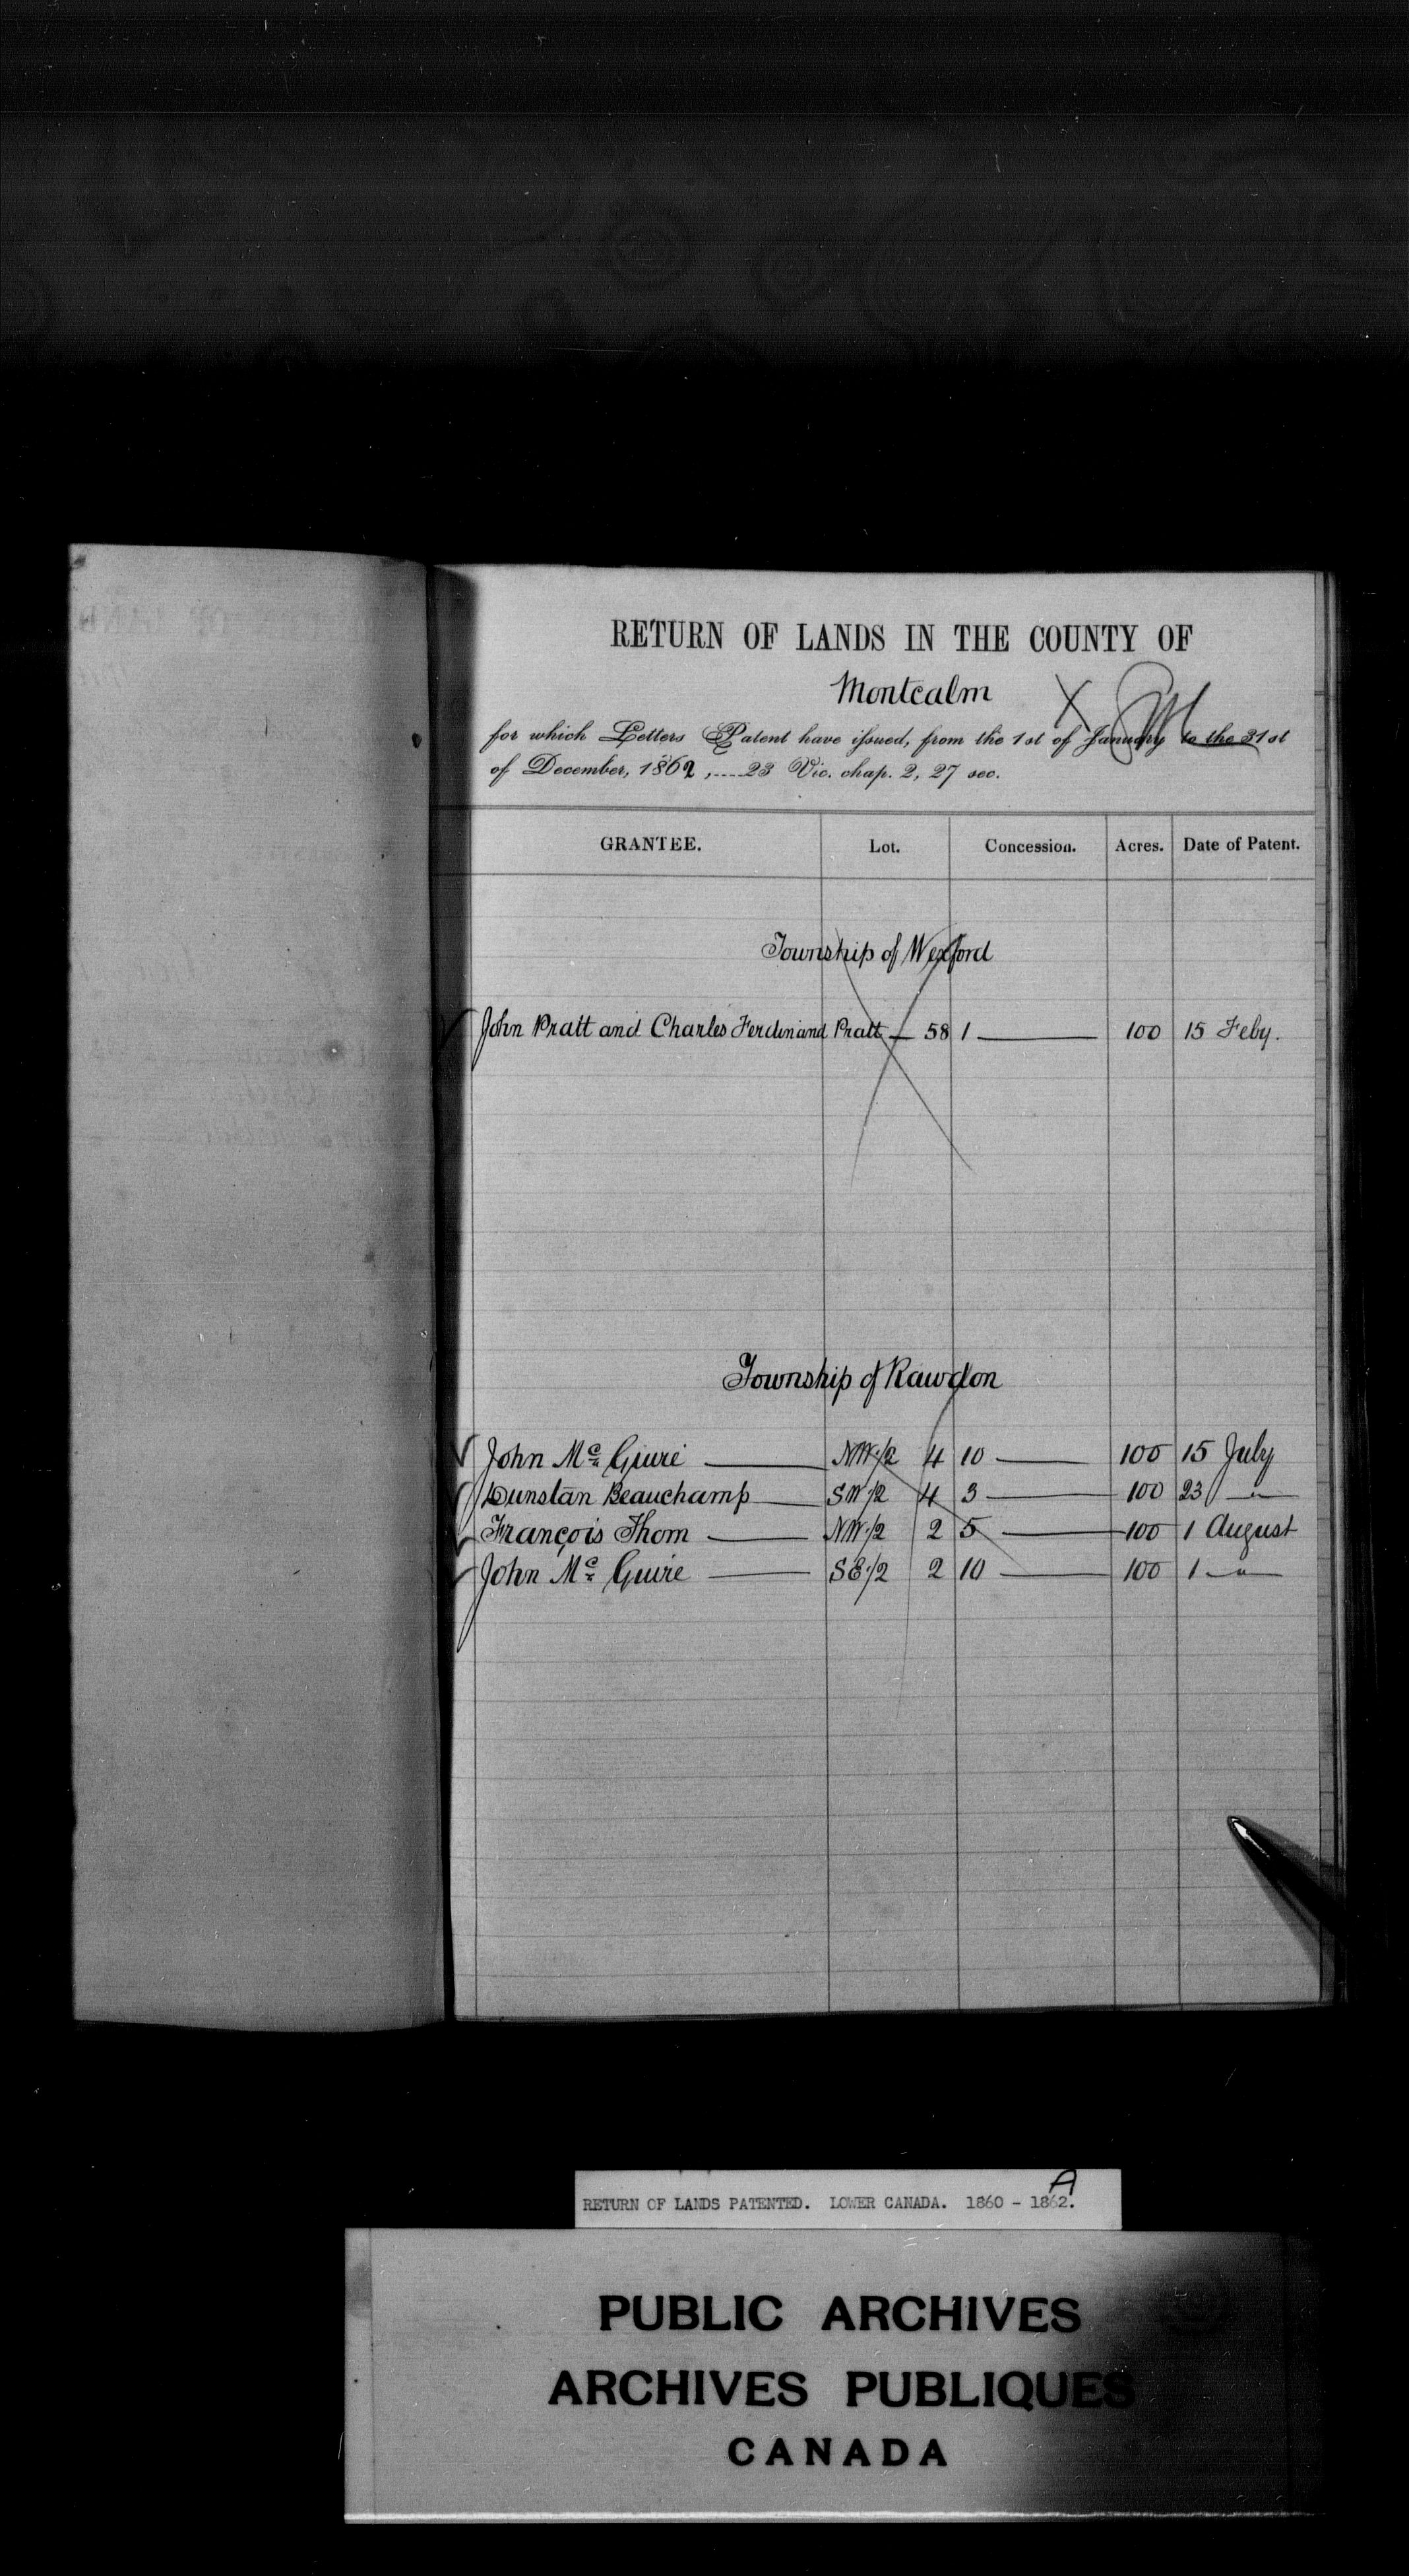 RETURN OF LANDS IN THE COUNTY OF
Montcalm X
for which Letters Patent have issued, from the 1st of January to the 31st
of December, 1862, ....23 Vic. chap. 2, 27 sec.
GRANTEE. Lot. Concession. Acres. Date of Patent.
Township of Wexford
John Pratt and Charles Ferdinand Pratt — 58 1 — 100 15 Feby.
Township of Rawdon
John Mc Guire — NW 1/2 4 10 — 100 15 July
Dunstan Beauchamp — SW 1/2 4 3 — 100 23 — " —
François Thom — NW 1/2 2 5 — 100 1 August
John Mc Guire — SE 1/2 2 10 — 100 1 — " —
A
RETURN OF LANDS PATENTED. LOWER CANADA. 1860 - 1862.
PUBLIC ARCHIVES
ARCHIVES PUBLIQUES
CANADA